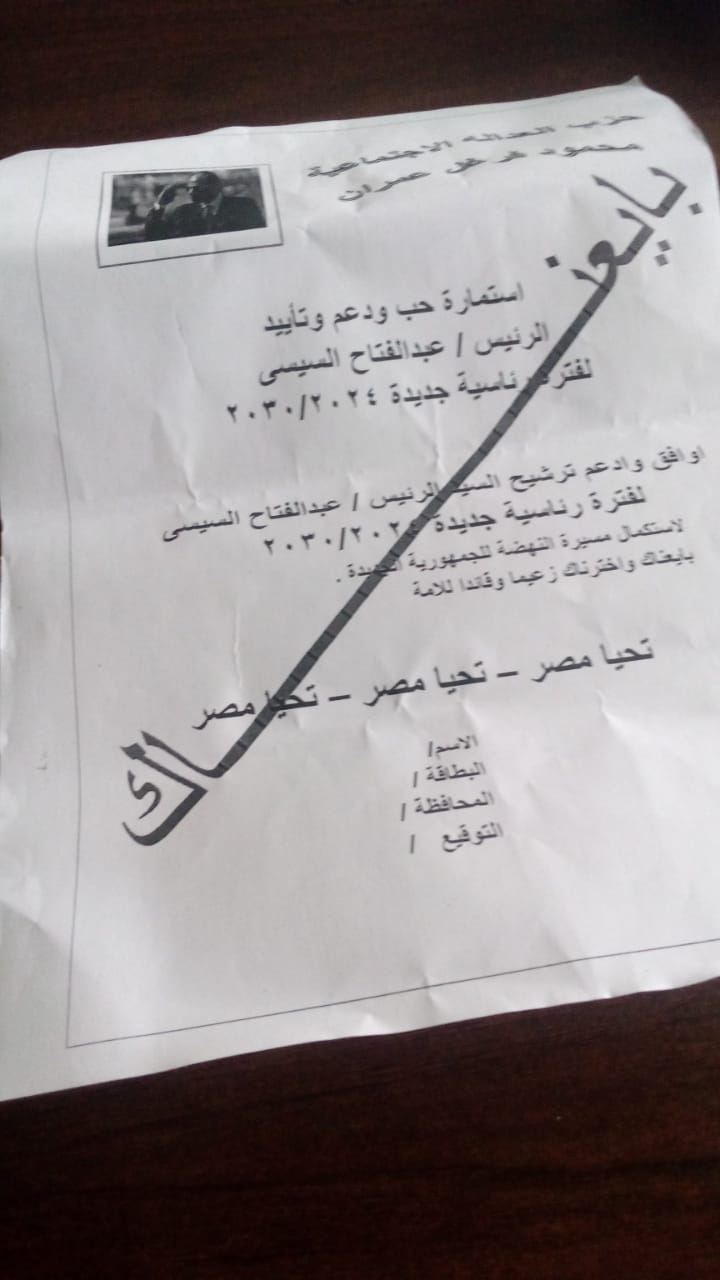 حزب العداله الاجتماعية
محمود فرغل عمران
بايعناك
استمارة حب ودعم وتأييد
الرئيس / عبدالفتاح السيسى
لفترة رئاسية جديدة ٢٠٣٠/٢٠٢٤
اوافق وادعم ترشيح السيد الرئيس / عبدالفتاح السيسى
لفترة رئاسية جديدة ٢٠٣٠/٢٠٢٤
لاستكمال مسيرة النهضة للجمهورية الجديدة .
بايعناك واخترناك زعيما وقائدا للامة
تحيا مصر – تحيا مصر – تحيا مصر
الاسم/
البطاقة /
المحافظة /
التوقيع /